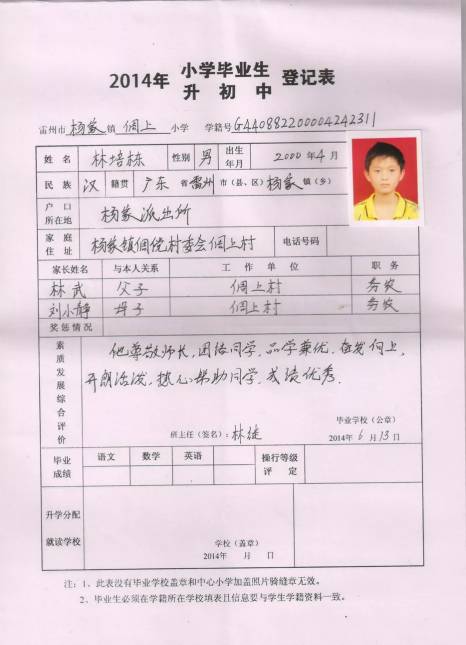 2014年 小学毕业生升初中 登记表
雷州市 杨家 镇 佃上 小学 学籍号 G440882200004242311
姓名 林培栋 性别 男 出生年月 2000年4月
民族 汉 籍贯 广东 省 雷州 市(县、区) 杨家 镇(乡)
户口所在地 杨家派出所
家庭住址 杨家镇佃佬村委会佃上村 电话号码
家长姓名 与本人关系 工作单位 职务
林武 父子 佃上村 务农
刘小静 母子 佃上村 务农
奖惩情况
素质发展综合评价
他尊敬师长,团结同学,品学兼优,奋发向上,
开朗活泼,热心帮助同学,成绩优秀.
毕业学校(公章)
班主任(签名): 林 2014年6月13日
毕业成绩 语文 数学 英语 操行等级评定
升学分配就读学校
学校(盖章)
2014年 月 日
注:1、此表没有毕业学校盖章和中心小学加盖照片骑缝章无效。
2、毕业生必须在学籍所在学校填表且信息要与学生学籍资料一致。